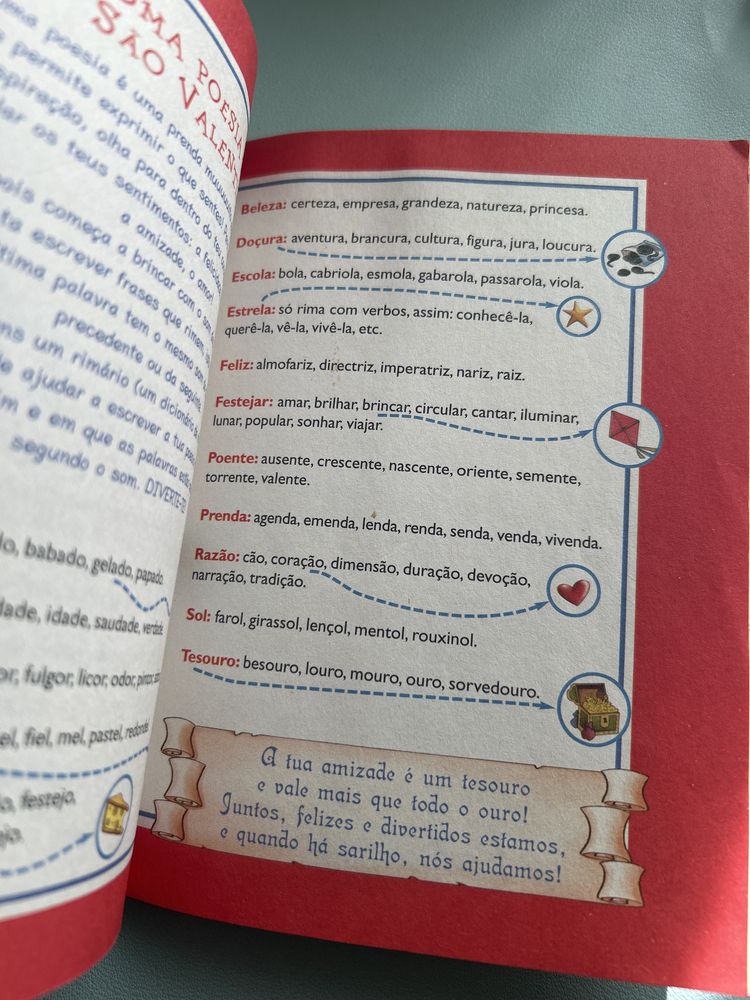 UMA POESIA
SÃO VALENT
uma poesia é uma prenda
permite exprimir o que sentes!
inspiração, olha para dentro do teu
os teus sentimentos: a felicidade
a amizade, o amor!
começa a brincar com o som
escrever frases que rimem
última palavra tem o mesmo som
precedente ou da seguinte
um rimário (um dicionário
ajudar a escrever a tua
e em que as palavras
segundo o som. DIVERTE-TE!
babado, gelado, papado
idade, saudade, verdade
fulgor, licor, odor, pintor
fiel, mel, pastel,
festejo.
Beleza: certeza, empresa, grandeza, natureza, princesa.
Doçura: aventura, brancura, cultura, figura, jura, loucura.
Escola: bola, cabriola, esmola, gabarola, passarola, viola.
Estrela: só rima com verbos, assim: conhecê-la,
querê-la, vê-la, vivê-la, etc.
Feliz: almofariz, directriz, imperatriz, nariz, raiz.
Festejar: amar, brilhar, brincar, circular, cantar, iluminar,
lunar, popular, sonhar, viajar.
Poente: ausente, crescente, nascente, oriente, semente,
torrente, valente.
Prenda: agenda, emenda, lenda, renda, senda, venda, vivenda.
Razão: cão, coração, dimensão, duração, devoção,
narração, tradição.
Sol: farol, girassol, lençol, mentol, rouxinol.
Tesouro: besouro, louro, mouro, ouro, sorvedouro.
A tua amizade é um tesouro
e vale mais que todo o ouro!
Juntos, felizes e divertidos estamos,
e quando há sarilho, nós ajudamos!